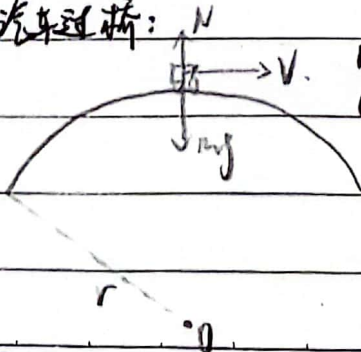 汽车过桥：
N
V.
mg
r
O